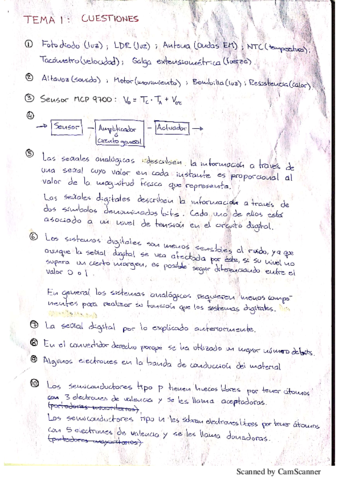 TEMA 1: CUESTIONES
① Fotodiodo (luz); LDR (luz); Antena (Ondas EM); NTC (temperatura);
Tacómetro (velocidad); Galga extensiométrica (fuerza).
② Altavoz (sonido); Motor (movimiento); Bombilla (luz); Resistencia (calor).
③ Sensor MCP 9700: Vo = Tc · TA +
④
Sensor Amplificador Actuador
o
circuito general
⑤ Las señales analógicas describen la información a través de
una señal cuyo valor en cada instante es proporcional al
valor de la magnitud física que representa.
Las señales digitales describen la información a través de
dos símbolos denominados bits. Cada uno de ellos está
asociado a un nivel de tensión en el circuito digital.
⑥ Los sistemas digitales son menos sensibles al ruido, ya que
aunque la señal digital se vea afectada por éste, si su nivel no
supera un cierto margen, es posible seguir diferenciando entre el
valor 0 o 1.
En general los sistemas analógicos requieren menos compo-
nentes para realizar su función que los sistemas digitales.
⑦ La señal digital por lo explicado anteriormente.
⑧ En el convertidor derecho porque se ha utilizado un mayor número de bits.
⑨ Algunos electrones en la banda de conducción del material
⑩ Los semiconductores tipo p tienen huecos libres por tener átomos
con 3 electrones de valencia y se les llama aceptadoras.
(portadores mayoritarios).
Los semiconductores tipo n les sobran electrones libres por tener átomos
con 5 electrones de valencia y se les llama donadoras.
(portadores mayoritarios)
Scanned by CamScanner